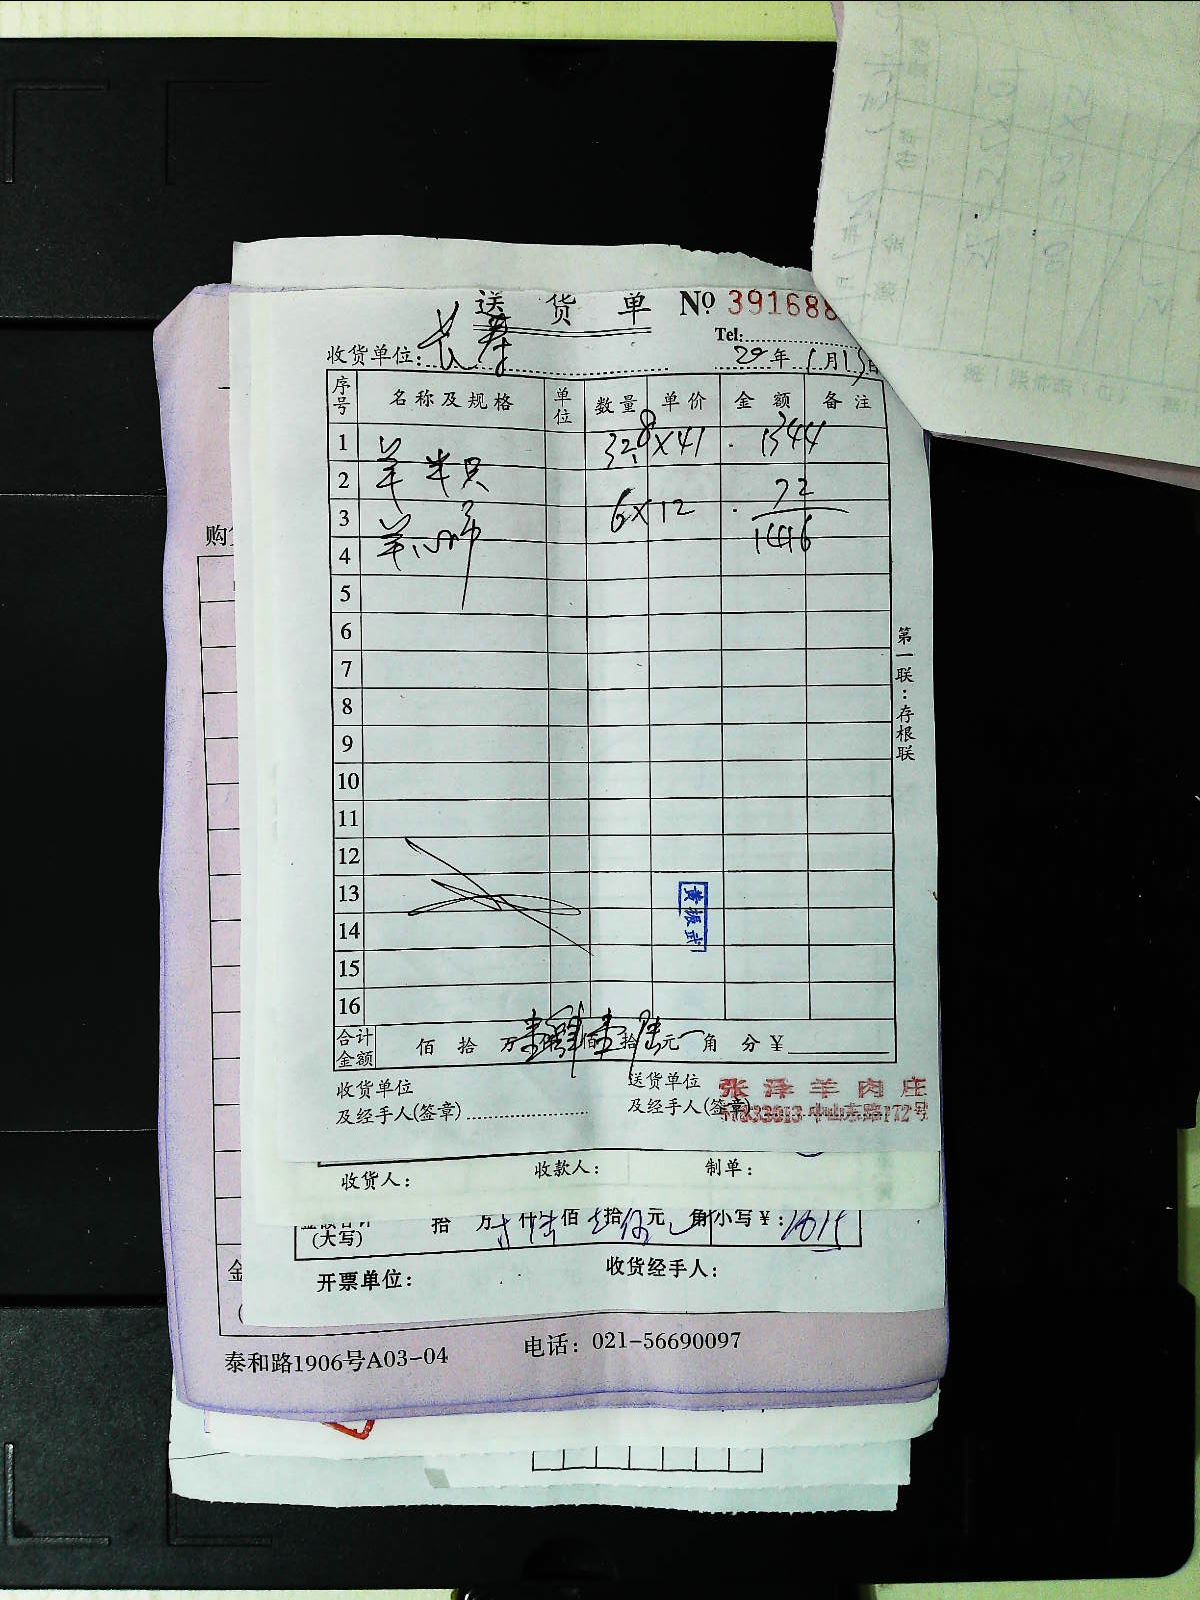 送 货 单 № 391688
Tel:
收货单位: 20年1月15日
序号 名称及规格 单位 数量 单价 金额 备注
1 羊半只 32.8×41 1344
2
3 6×12 72
4 1416
5
6
7
8
9
10
11
12
13
14
15
16
黄振武
合计金额 佰 拾 万 壹仟肆佰壹拾陆元 角 分 ¥
收货单位 送货单位
及经手人(签章) 及经手人(签章)
张泽羊肉庄
中山东路172号
第一联:存根联
收货人: 收款人: 制单:
(大写) 拾 万 仟 佰 拾 元 角 小写¥: 1615
开票单位: 收货经手人:
泰和路1906号A03-04 电话: 021-56690097